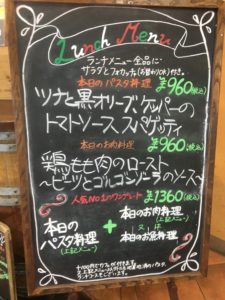 Lunch Menu
ランチメニュー全品に
サラダとフォカッチャ(お替わりOK)付き。
本日のパスタ料理 ¥960(税込)
ツナと黒オリーブ、ケッパーの
トマトソース スパゲッティ
本日のお肉料理 ¥960(税込)
鶏もも肉のロースト
〜ビーツとゴルゴンゾーラのソース〜
人気NO.1のワンプレート ¥1360(税込)
本日の
パスタ料理
(上記メニュー)
+
本日のお肉料理
(上記メニュー)
又は
本日のお魚料理